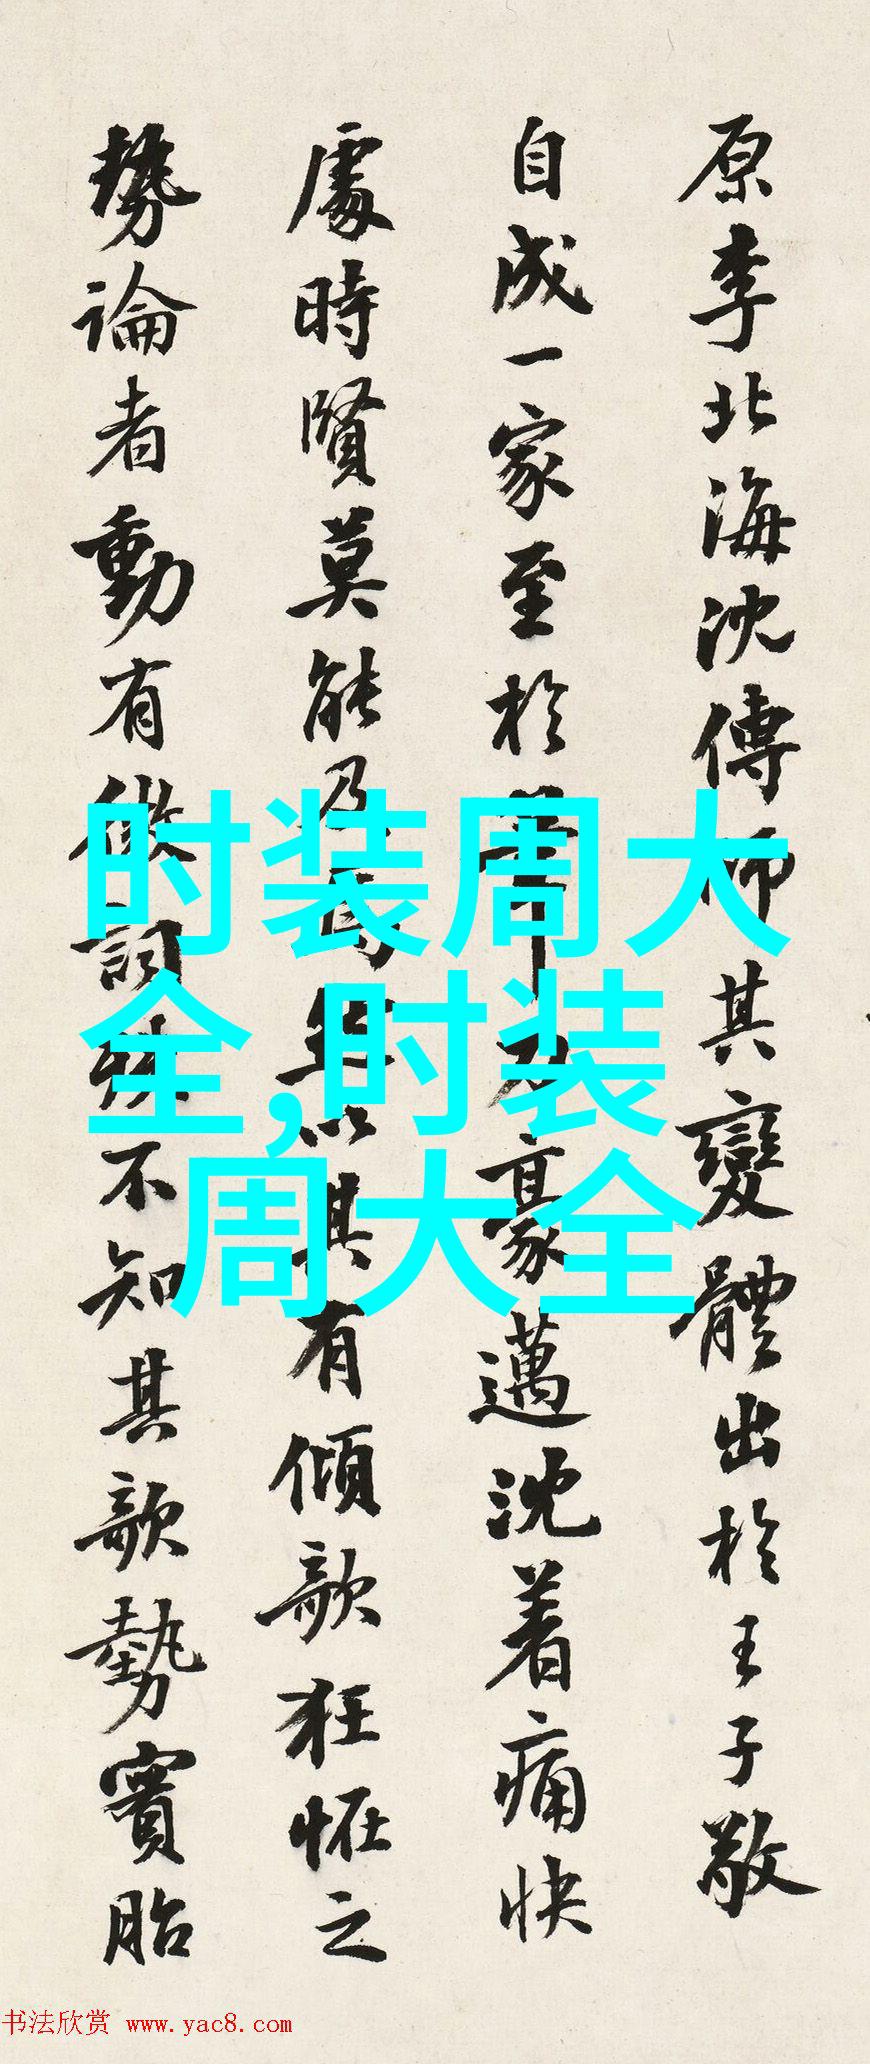 原李北海沈傳師其變體出於王子敬
自成一家至於筆下豪邁沈着痛快
處時賢莫能及無以其有傾欹狂怪之
勢論者動有微詞殊不知其欹勢實胎
时装周大
全,时装
周大全
书法欣赏 www.yac8.com